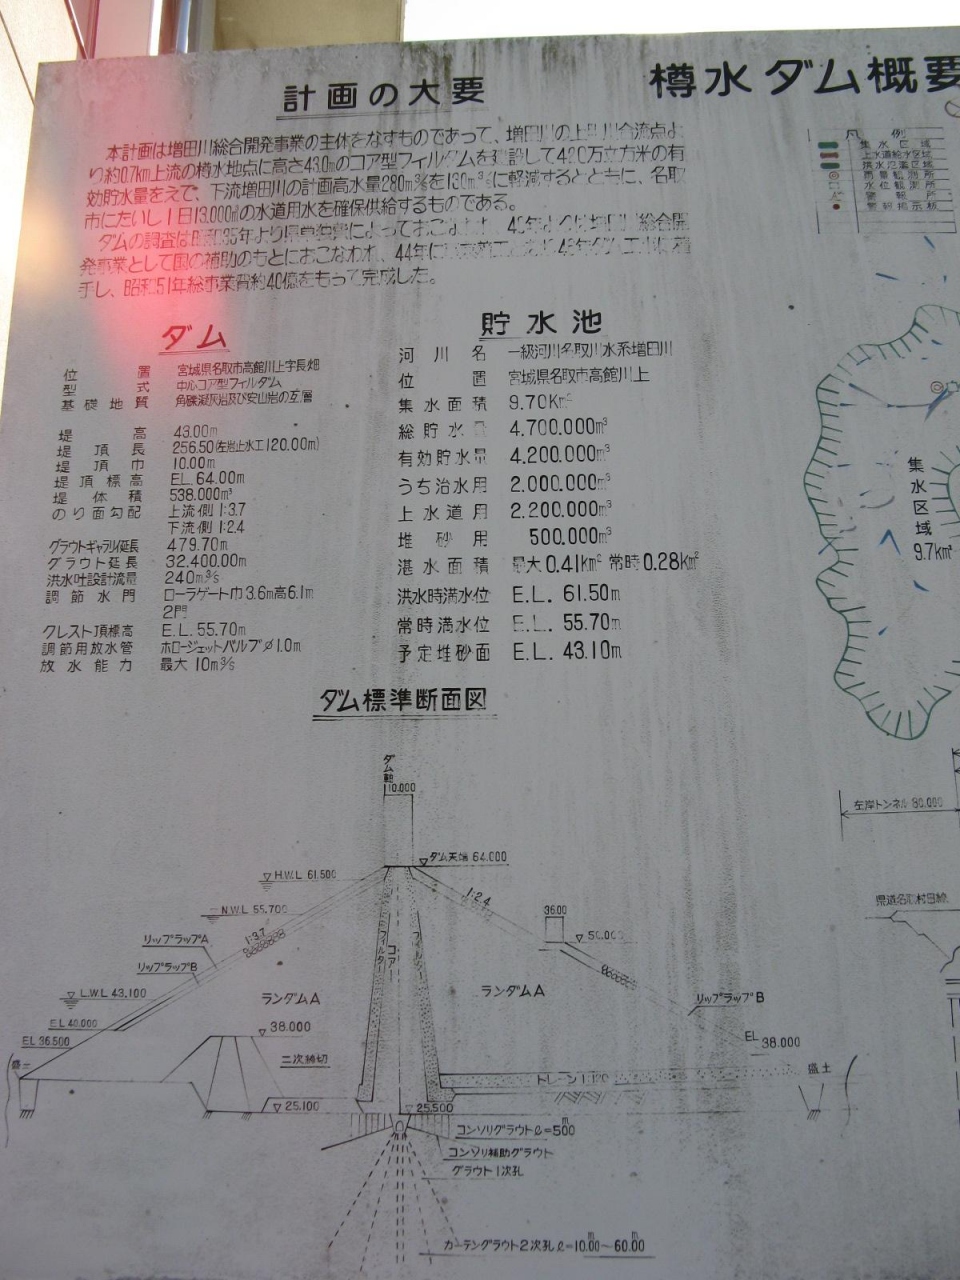 計画の大要
樽水ダム概要
本計画は増田川総合開発事業の主体をなすものであって、増田川の上 川合流点よ
り約0.7km上流の樽水地点に高さ43.0mのコア型フィルダムを 設して420万立方米の有
効貯水量をえて、下流増田川の計画高水量280m³/sを130m³/sに軽減するとともに、名取
市にたいし1日13,000㎥の水道用水を確保供給するものである。
ダムの調査は昭和35年より県単独費によっておこなわれ、 総合開
発事業として国の補助のもとにおこなわれ、44年に
手し、昭和51年総事業費約40億をもって完成した。
凡例
集水区域
上水道給水区域
洪水氾濫区域
雨量観測所
水位観測所
警報所
警報掲示板
ダム
位置 宮城県名取市高館川上字長畑
型式 中心コア型フィルダム
基礎地質 角礫凝灰岩及び安山岩の互層
堤高 43.00m
堤頂長 256.50(左岩止水工120.00m)
堤頂巾 10.00m
堤頂標高 EL.64.00m
堤体積 538.000m³
のり面勾配 上流側1:3.7
下流側1:2.4
グラウトギャラリ延長 479.70m
グラウト延長 32.400.00m
洪水吐設計流量 240m³/s
調節水門 ローラゲート巾3.6m高6.1m
2門
クレスト頂標高 E.L.55.70m
調節用放水管 ホロージェットバルブφ1.0m
放水能力 最大10m³/s
貯水池
河川名 一級河川名取川水系増田川
位置 宮城県名取市高館川上
集水面積 9.70Km²
総貯水量 4.700.000m³
有効貯水量 4.200.000m³
うち治水用 2.000.000m³
上水道用 2.200.000m³
堆砂用 500.000m³
湛水面積 最大0.41km² 常時0.28km²
洪水時満水位 E.L. 61.50m
常時満水位 E.L. 55.70m
予定堆砂面 E.L. 43.10m
集水区域
9.7km²
ダム標準断面図
ダム軸
10.000
ダム天端64.000
H.W.L 61.500
N.W.L 55.700
1:3.7
1:2.4
36.00
50.000
リップラップA
リップラップB
L.W.L 43.100
EL 40.000
EL 36.500
盛土
ランダムA
フィルター
コアー
フィルター
ランダムA
リップラップB
EL 38.000
38.000
二次締切
25.100
25.500
盛土
コンソリグラウトℓ=500m
コンソリ補助グラウト
グラウト1次孔
カーテングラウト2次孔ℓ=10.00m~60.00m
左岸トンネル80.000